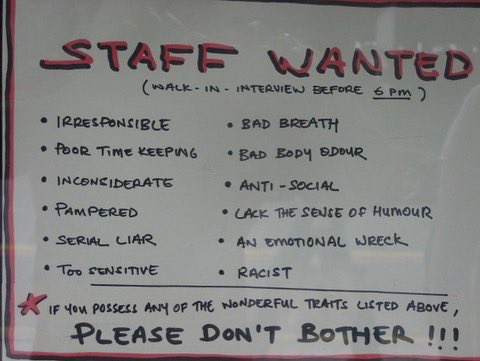 STAFF WANTED
(WALK-IN-INTERVIEW BEFORE 6 PM)
• IRRESPONSIBLE
• POOR TIME KEEPING
• INCONSIDERATE
• PAMPERED
• SERIAL LIAR
• TOO SENSITIVE
• BAD BREATH
• BAD BODY ODOUR
• ANTI-SOCIAL
• LACK THE SENSE OF HUMOUR
• AN EMOTIONAL WRECK
• RACIST
* IF YOU POSSESS ANY OF THE WONDERFUL TRAITS LISTED ABOVE,
PLEASE DON'T BOTHER !!!